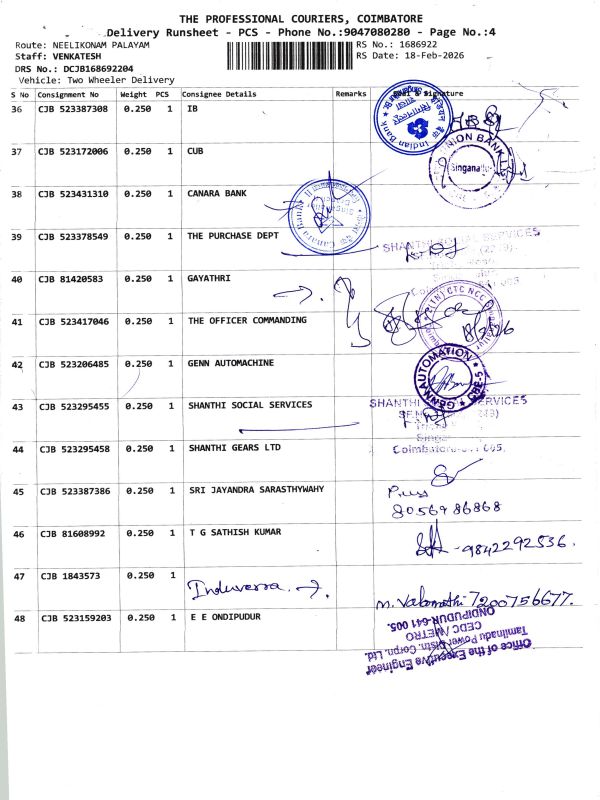 THE PROFESSIONAL COURIERS, COIMBATORE
Delivery Runsheet - PCS - Phone No.:9047080280 - Page No.:4
Route: NEELIKONAM PALAYAM
RS No.: 1686922
Staff: VENKATESH
RS Date: 18-Feb-2026
DRS No.: DCJB168692204
Vehicle: Two Wheeler Delivery
S No Consignment No Weight PCS Consignee Details Remarks Seal & Signature
36 CJB 523387308 0.250 1 IB
Indian Bank
37 CJB 523172006 0.250 1 CUB
UNION BANK
Singanallur
38 CJB 523431310 0.250 1 CANARA BANK
39 CJB 523378549 0.250 1 THE PURCHASE DEPT
SHANTHI SERVICES
40 CJB 81420583 0.250 1 GAYATHRI
41 CJB 523417046 0.250 1 THE OFFICER COMMANDING
NCC
42 CJB 523206485 0.250 1 GENN AUTOMACHINE
GENN AUTOMATION
CBE-5
43 CJB 523295455 1 0.250 SHANTHI SOCIAL SERVICES
SHANTHI SERVICES
44 CJB 523295458 0.250 1 SHANTHI GEARS LTD
Coimbatore 005.
45 CJB 523387386 0.250 1 SRI JAYANDRA SARASTHYWAHY
8056986868
46 CJB 81608992 0.250 1 T G SATHISH KUMAR
-9842292536.
47 CJB 1843573 0.250 1
n. Valarmathi 7200756677.
48 CJB 523159203 0.250 1 E E ONDIPUDUR
Office of the Executive Engineer
Tamilnadu Power Distn. Corpn. Ltd.
CEDC / METRO
ONDIPUDUR-641 005.